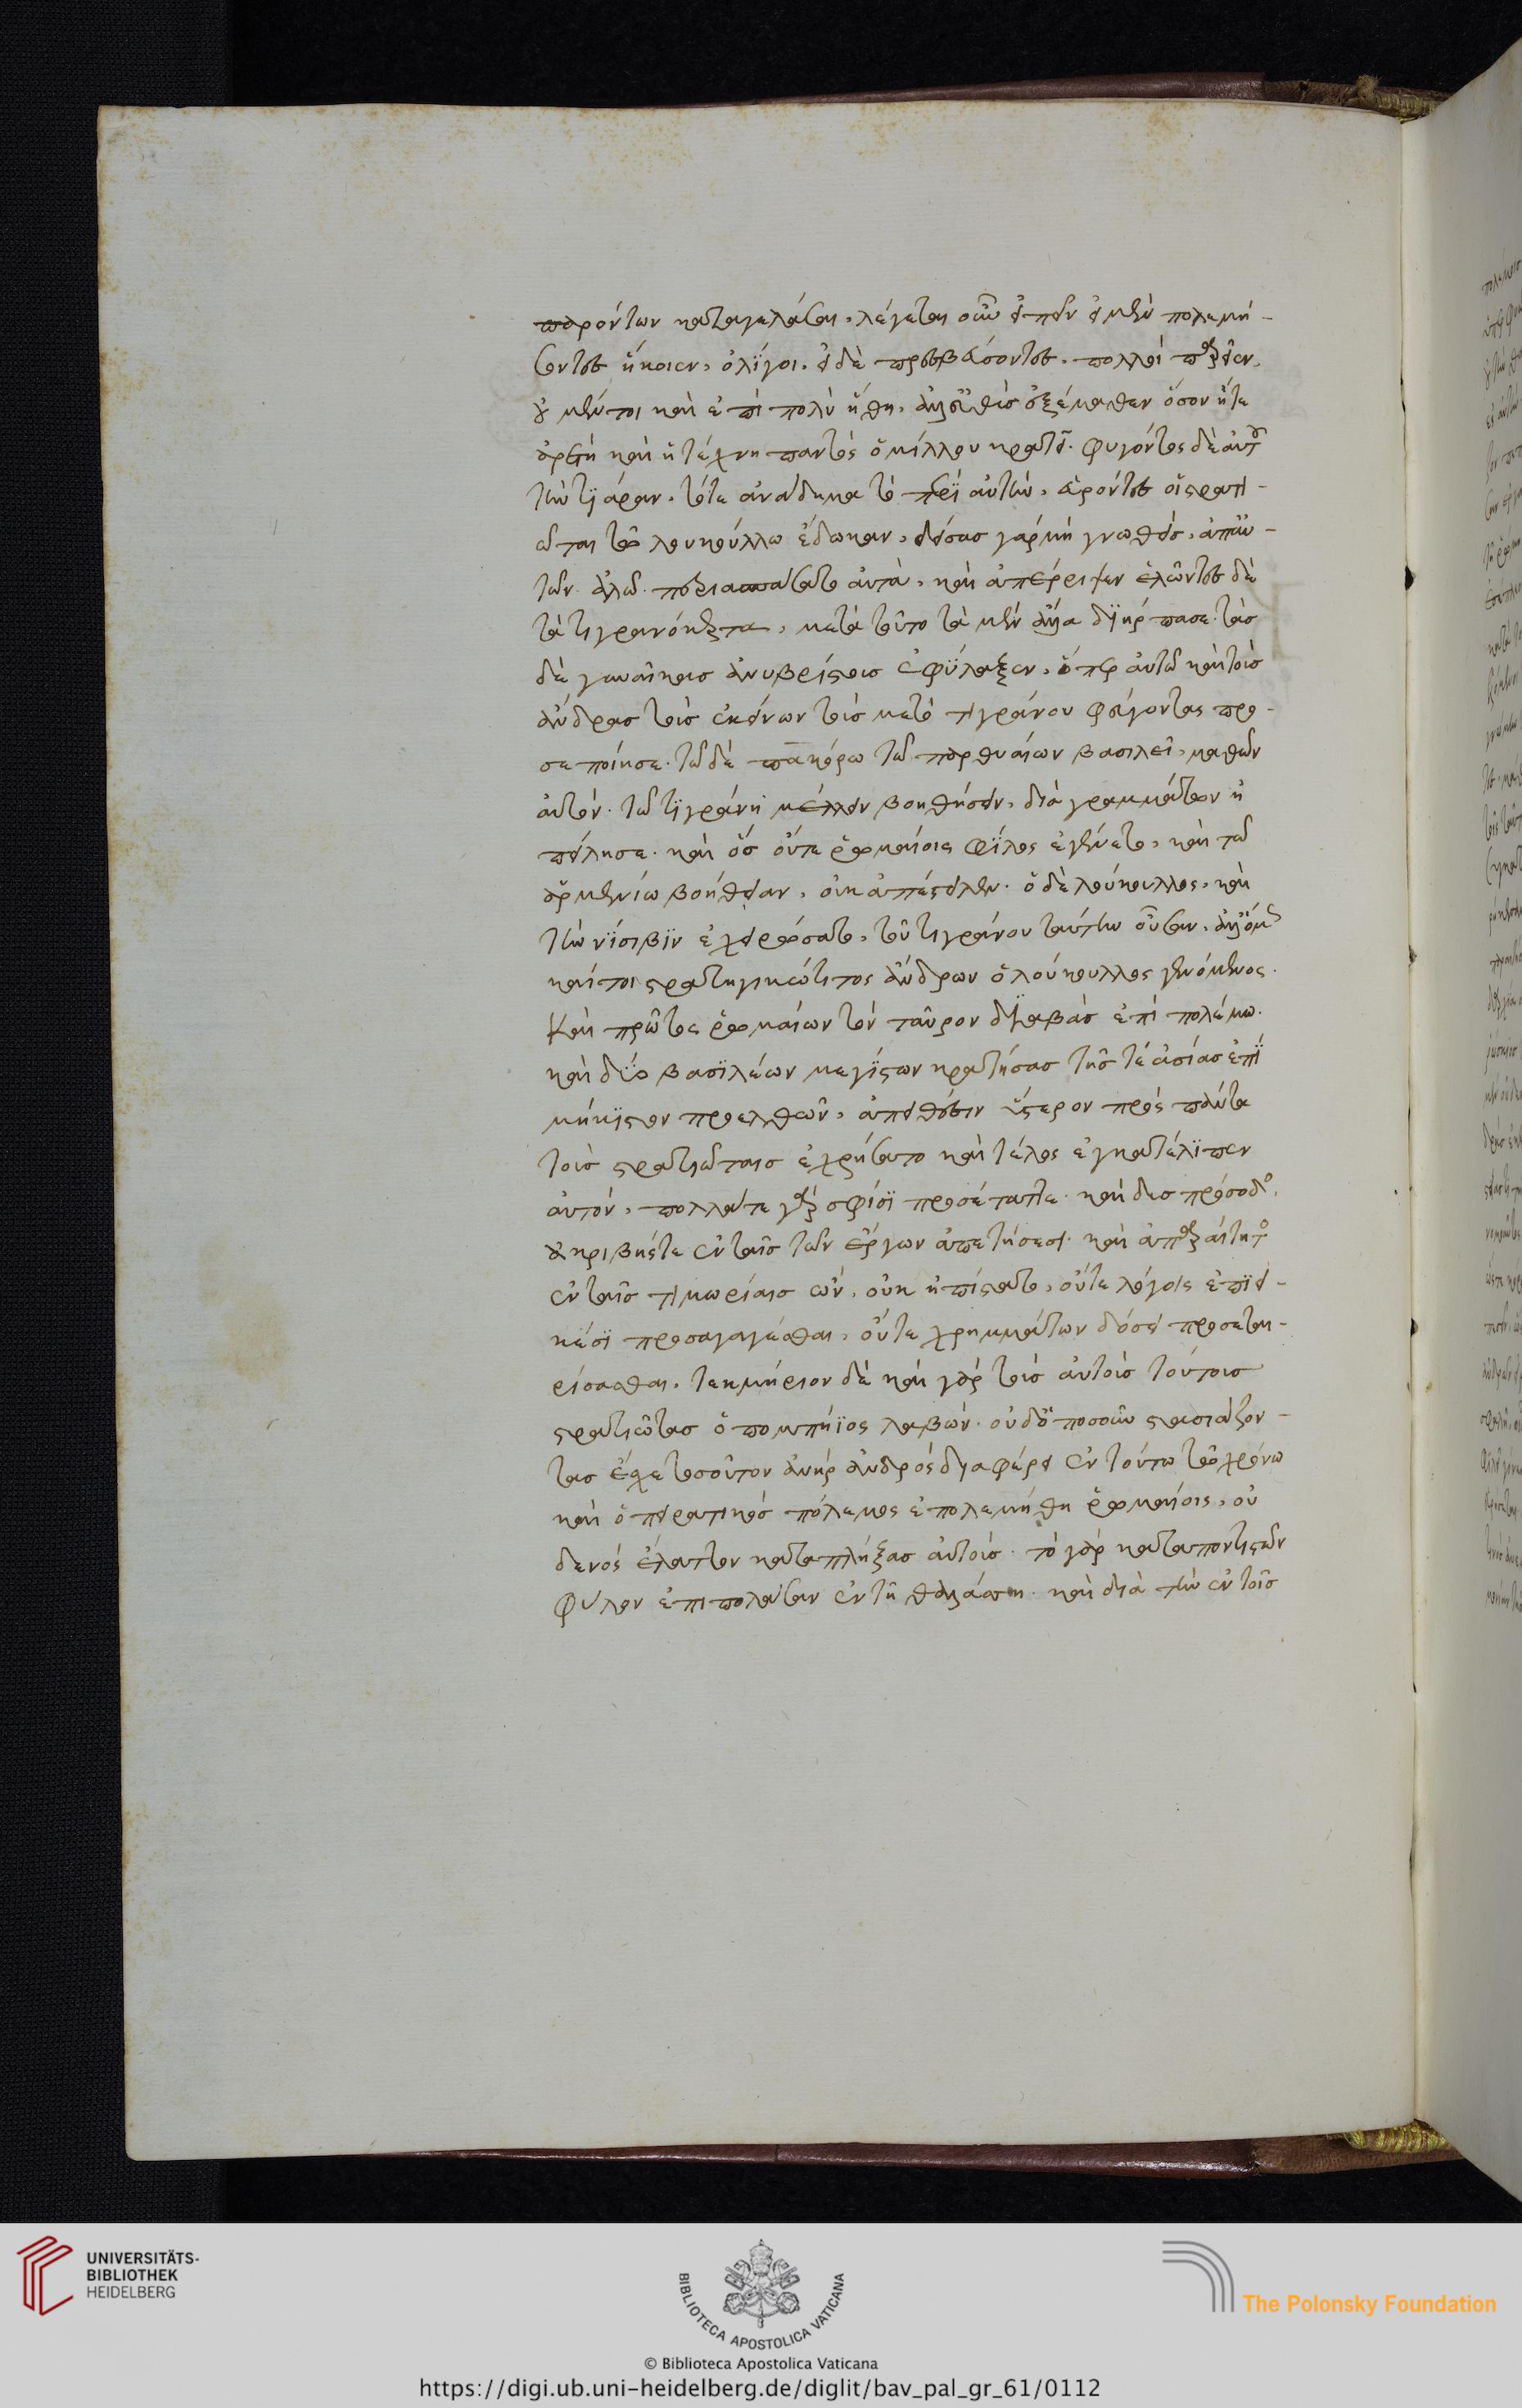 παρόντων καταγελάσαι. λέγεται οὖν εἰπεῖν εἰ μὲν πολεμή-
σοντες ἥκοιεν, ὀλίγοι. εἰ δὲ πρεσβεύσοντες. πολλοὶ παρεῖεν.
οὐ μέντοι καὶ ἐπὶ πολὺ ἥσθη. ἀλλ' εὐθὺς ἐξέμαθεν ὅσον ἥτε
ἀρετὴ καὶ ἡ τέχνη παντὸς ὁμίλλου κρατεῖ. φυγόντος δὲ αὐτοῦ
τὴν τϊάραν. τότε ἀνάδημα τὸ περὶ αὐτὴν. εὑρόντες οἱ στρατι-
ῶται τῶ λουκούλλω ἔδωκαν. δείσας γὰρ μὴ γνωσθεὶς. ἀπ' αὐ-
τῶν ἁλῶ. περιεσπάσατο αὐτὰ, καὶ ἀπέρριψεν ἑλῶντες δὲ
τὰ τιγρανόκερτα, μετὰ τοῦτο τὰ μὲν ἄλλα διήρπασε. τὰς
δὲ γυναῖκας ἀνυβρίστους ἐφύλαξεν. ὅπερ αὐτῶ καὶ τοὺς
ἄνδρας τοὺς ἐκείνων τοὺς μετὰ τιγράνου φεύγοντας προ-
σεποίησε. τῶ δὲ πακόρω τῶ παρθυαίων βασιλεῖ. μαθὼν
αὐτὸν. τῶ τϊγράνη μέλλειν βοηθήσειν. διὰ γραμμάτων ἠ
πείλησε. καὶ ὃς οὔτε ῥωμαίοις φίλος ἐγένετο, καὶ τῶ
ἀρμενίω βοήθειαν. οὐκ ἀπέστειλεν. ὁ δὲ λούκουλλος. καὶ
τὴν νίσιβϊν ἐχειρώσατο. τοῦ τιγράνου ταύτην οὖσαν. ἀλλ' ὅμως
καίτοι στρατηγικώτατος ἀνδρῶν ὁ λούκουλλος γενόμενος.
Καὶ πρῶτος ῥωμαίων τὸν ταῦρον διαβὰς ἐπὶ πολέμω.
καὶ δύο βασϊλέων μεγίστων κρατήσας τῆς τὲ ἀσίας ἐπὶ
μήκιστον προελθὼν. ἀπειθέσιν ὕστερον πρὸς πάντα
τοῖς στρατιώταις ἐχρήσατο καὶ τέλος ἐγκατέλιπεν
αὐτόν. πολλά τε γὰρ σφίσϊ προσέταττε. καὶ δυσπρόσοδος.
ἀκριβής τε ἐν ταῖς τῶν ἔργων ἀπετήσεσι. καὶ ἀπαραίτητος
ἐν ταῖς τιμωρίαις ὢν. οὐκ ἠπίστατο. οὔτε λόγοις ἐπϊει-
κέσι προσαγαγέσθαι. οὔτε χρημμάτων δόσει προσεται-
ρίσασθαι. τεκμήριον δὲ καὶ γὰρ τοὺς αὐτοὺς τούτους
στρατιῶτας ὁ πομπήϊος λαβὼν. οὐδ' ὁποσοῦν στασιάζον-
τας ἔσχε τοσοῦτον ἀνὴρ ἀνδρὸς διαφέρει ἐν τούτω τῶ χρόνω
καὶ ὁ πειρατικὸς πόλεμος ἐπολεμήθη ῥωμαίοις. οὐ
δενὸς ἔλαττον καταπλήξας αὐτοὺς. τὸ γὰρ καταποντιστῶν
φῦλον ἐπιπολάσαν ἐν τῆ θαλάσση. καὶ διὰ τὴν ἐν τοῖς
UNIVERSITÄTS-
BIBLIOTHEK
HEIDELBERG
BIBLIOTECA APOSTOLICA VATICANA
The Polonsky Foundation
© Biblioteca Apostolica Vaticana
https://digi.ub.uni-heidelberg.de/diglit/bav_pal_gr_61/0112